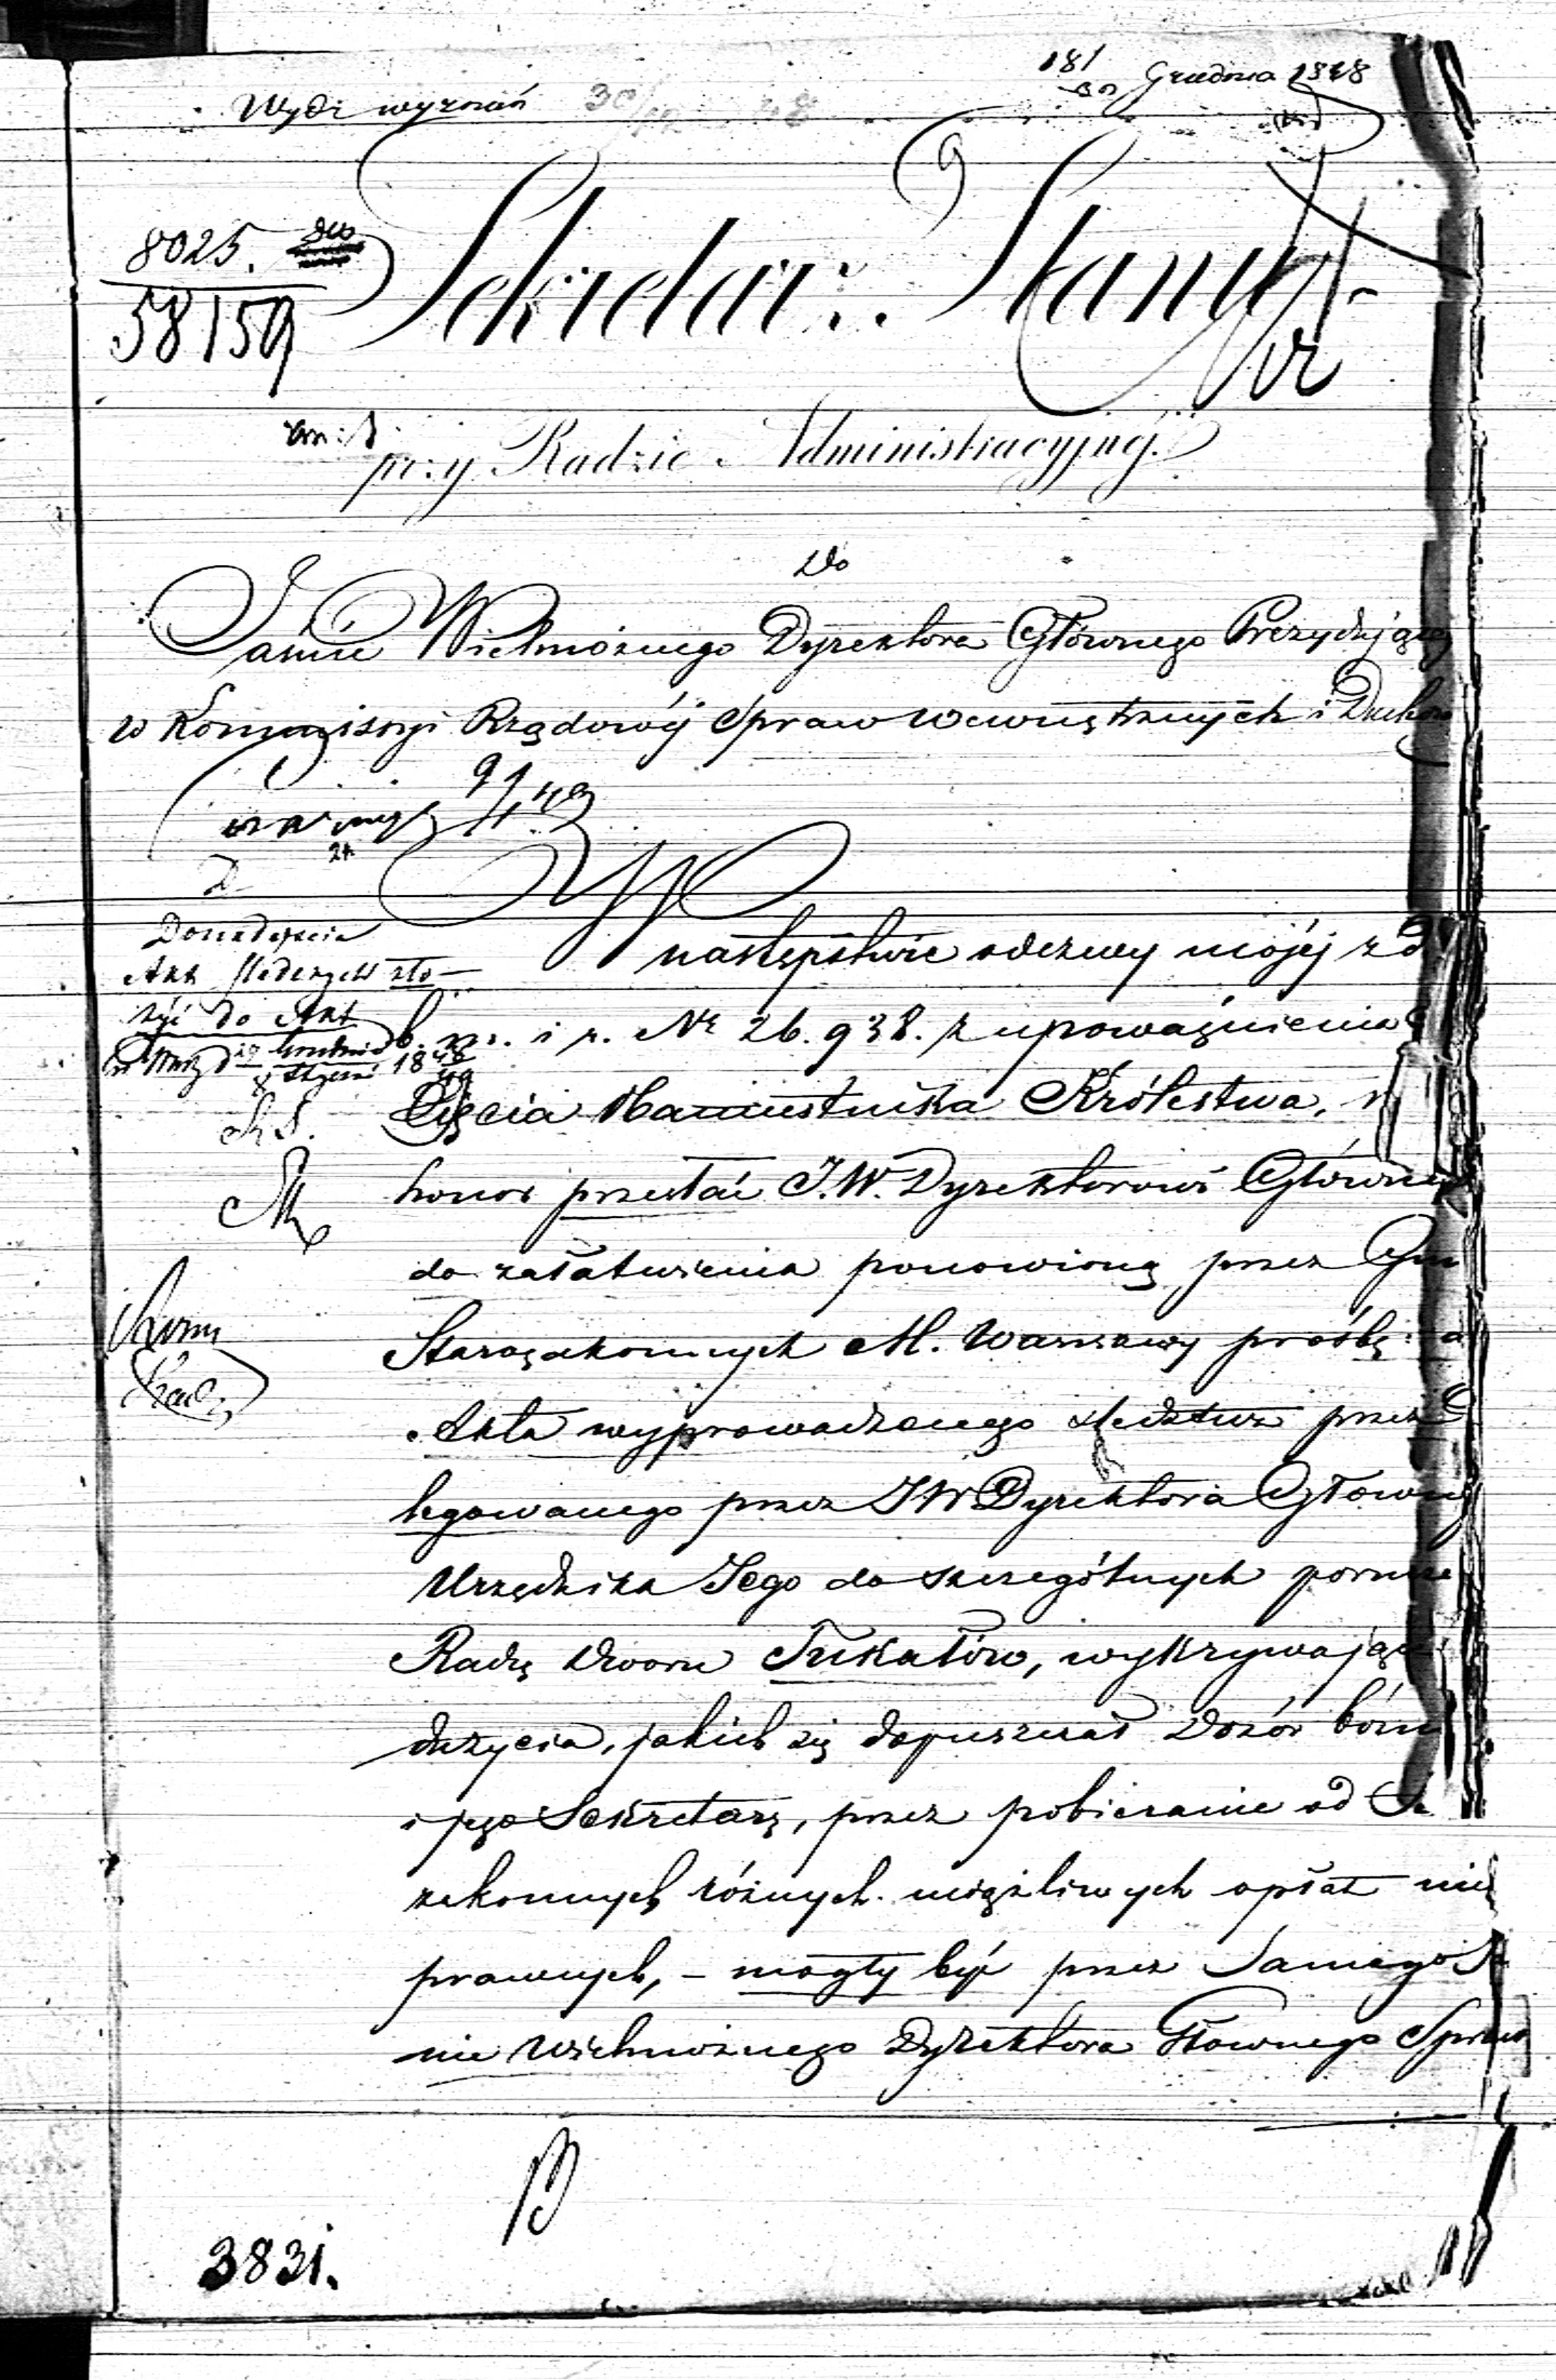 Wydz wyznań 30/12 48
18/30 Grudnia 1848
8025.
58159
Sekretarz Stanu
przy Radzie Administracyjnéj.
Do
Jaśnie Wielmożnego Dyrektora Głównego Prezydującego
w Kommissyi Rządowéj Spraw Wewnętrznych i Duchow
W
następstwie odezwy mojéj z d
b. m. i r. Nr 26.938. z upoważnienia
Xięcia Namiestnika Królestwa, m
honor przesłać J.W. Dyrektorowi Główne
do załatwienia ponowioną przez Gm
Starozakonnych M. Warszawy prośbę a
Akta wyprowadzonego śledztwa przez D
legowanego przez JW Dyrektora Główne
Urzędnika Jego do szczególnych porucze
Radzę Dworu Tukałłow, wykrywając
dużycia, jakich się dopuszczał Dozór bóżn
i jego Sekretarz, przez pobieranie od St
zakonnych różnych uciążliwych opłat nie
prawnych, – mogły być przez Samego J
nie Wielmożnego Dyrektora Głównego Spraw
Do nadejścia
Akt śledczych zło-
żyć do Akt
3831.